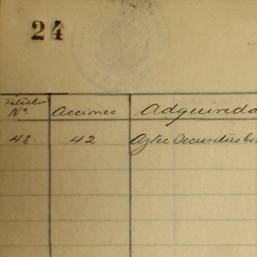 24
Titulo
Nº Acciones Adquirida
48. 42 Aztec Securities Co